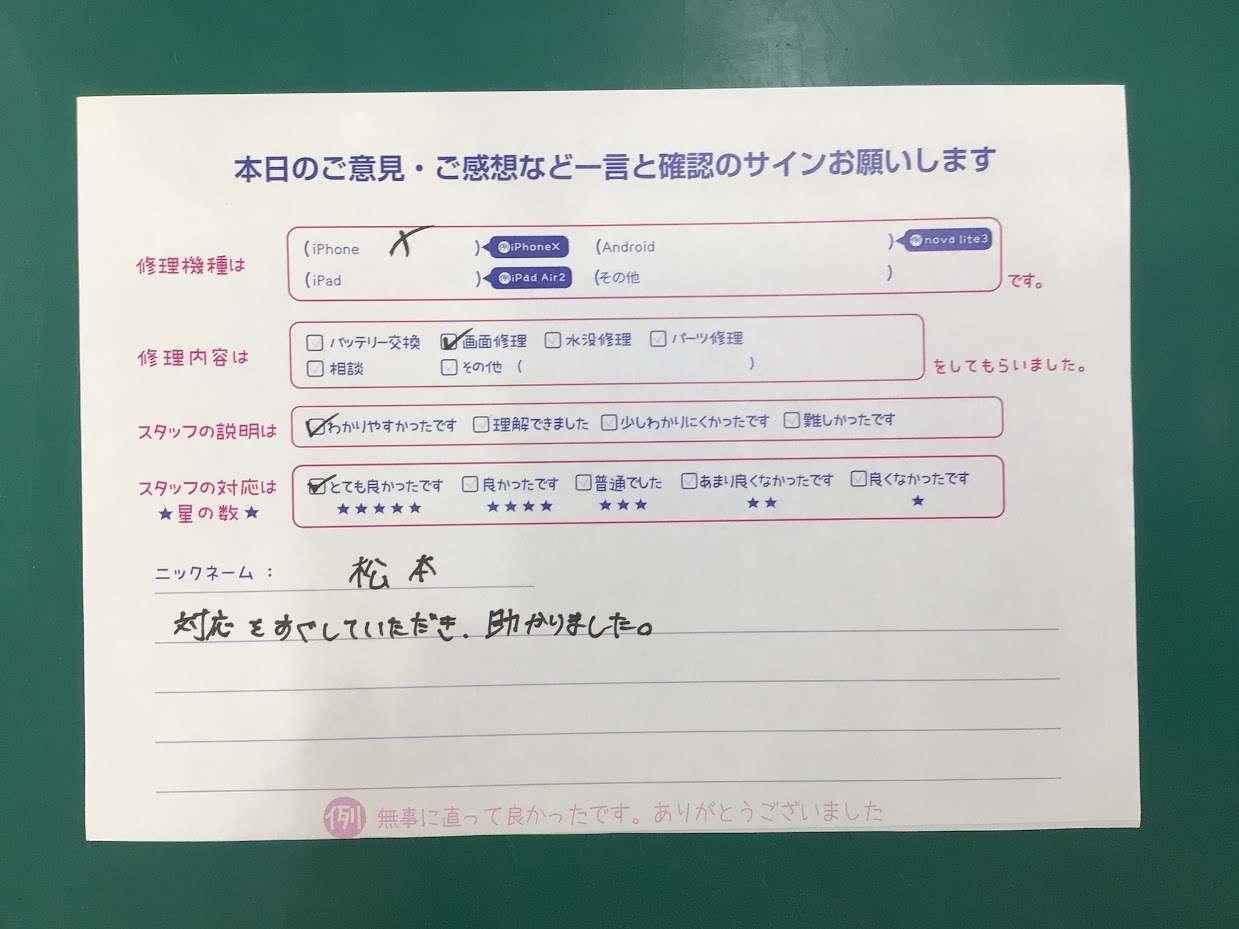 本日のご意見・ご感想など一言と確認のサインお願いします
修理機種は (iPhone X ) 例iPhoneX (Android ) 例nova lite3
(iPad ) 例iPad Air2 (その他 ) です。
修理内容は バッテリー交換 ✓画面修理 水没修理 パーツ修理
相談 その他 ( ) をしてもらいました。
スタッフの説明は ✓わかりやすかったです 理解できました 少しわかりにくかったです 難しかったです
スタッフの対応は ✓とても良かったです 良かったです 普通でした あまり良くなかったです 良くなかったです
★星の数★ ★★★★★ ★★★★ ★★★ ★★ ★
ニックネーム: 松本
対応をすぐしていただき、助かりました。
例 無事に直って良かったです。ありがとうございました